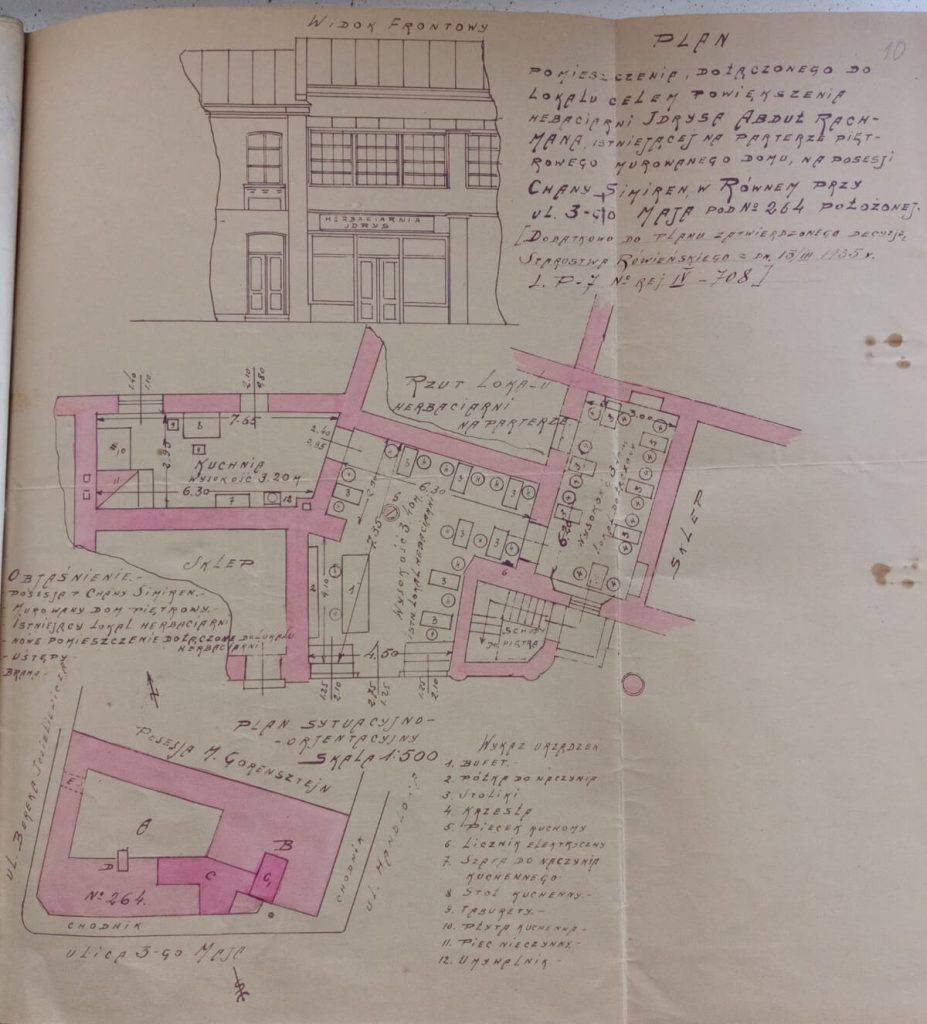 WIDOK FRONTOWY
HERBACIARNIA
JDRYS
PLAN
10
POMIESZCZENIA, DOŁĄCZONEGO DO
LOKALU CELEM POWIĘKSZENIA
HEBACIARNI JDRYSA ABDUŁ RACH-
MANA, ISTNIEJĄCEJ NA PARTERZE PIĘT-
ROWEGO MUROWANEGO DOMU, NA POSESJI
CHANY SIMIREN W RÓWNEM PRZY
UL. 3-GO MAJA POD № 264 POŁOŻONEJ.
[DODATKOWO DO PLANU ZATWIERDZONEGO DECYZJĄ
STAROSTWA ROWIEŃSKIEGO z DN. 15/III 1935 r.
L. P-7 № rej IV - 708]
RZUT LOKALU
HERBACIARNI
NA PARTERZE
1.10
2.10
0.80
7.65
2.95
KUCHNIA
WYSOKOŚĆ 3.20 M
6.30
2.40
0.95
6.30
7.35
WYSOKOŚĆ 3.40 M
ISTN. LOKAL HERBACIARNI
4.10
4.50
3.00
6.20
SKLEP
SKLEP
SCHODY
NA PIĘTRO
1.25
2.10
2.75
1.25
1.25
2.10
OBJAŚNIENIE.-
POSESJA CHANY SIMIREN.-
MUROWANY DOM PIĘTROWY.-
ISTNIEJĄCY LOKAL HERBACIARNI
NOWE POMIESZCZENIE DOŁĄCZONE DO LOKALU
HERBACIARNI
USTĘPY
BRAMA.-
PLAN SYTUACYJNO-
-ORJENTACYJNY
SKALA 1:500
POSESJA M. GORENSZTEJN
UL. BERKA JOSIELEWICZA
UL. HANDLOWA
CHODNIK
E
B
D
C
C₁
№ 264.
CHODNIK
ULICA 3-GO MAJA
WYKAZ URZĄDZEŃ
1. BUFET.-
2. PÓŁKA DO NACZYNIA
3. STOLIKI
4. KRZESŁA
5. PIECEK RUCHOMY
6. LICZNIK ELEKTRYCZNY
7. SZAFA DO NACZYNIA
KUCHENNEGO.-
8. STÓŁ KUCHENNY.-
9. TABURETY.-
10. PŁYTA KUCHENNA.-
11. PIEC NIECZYNNY.-
12. UMYWALNIK.-